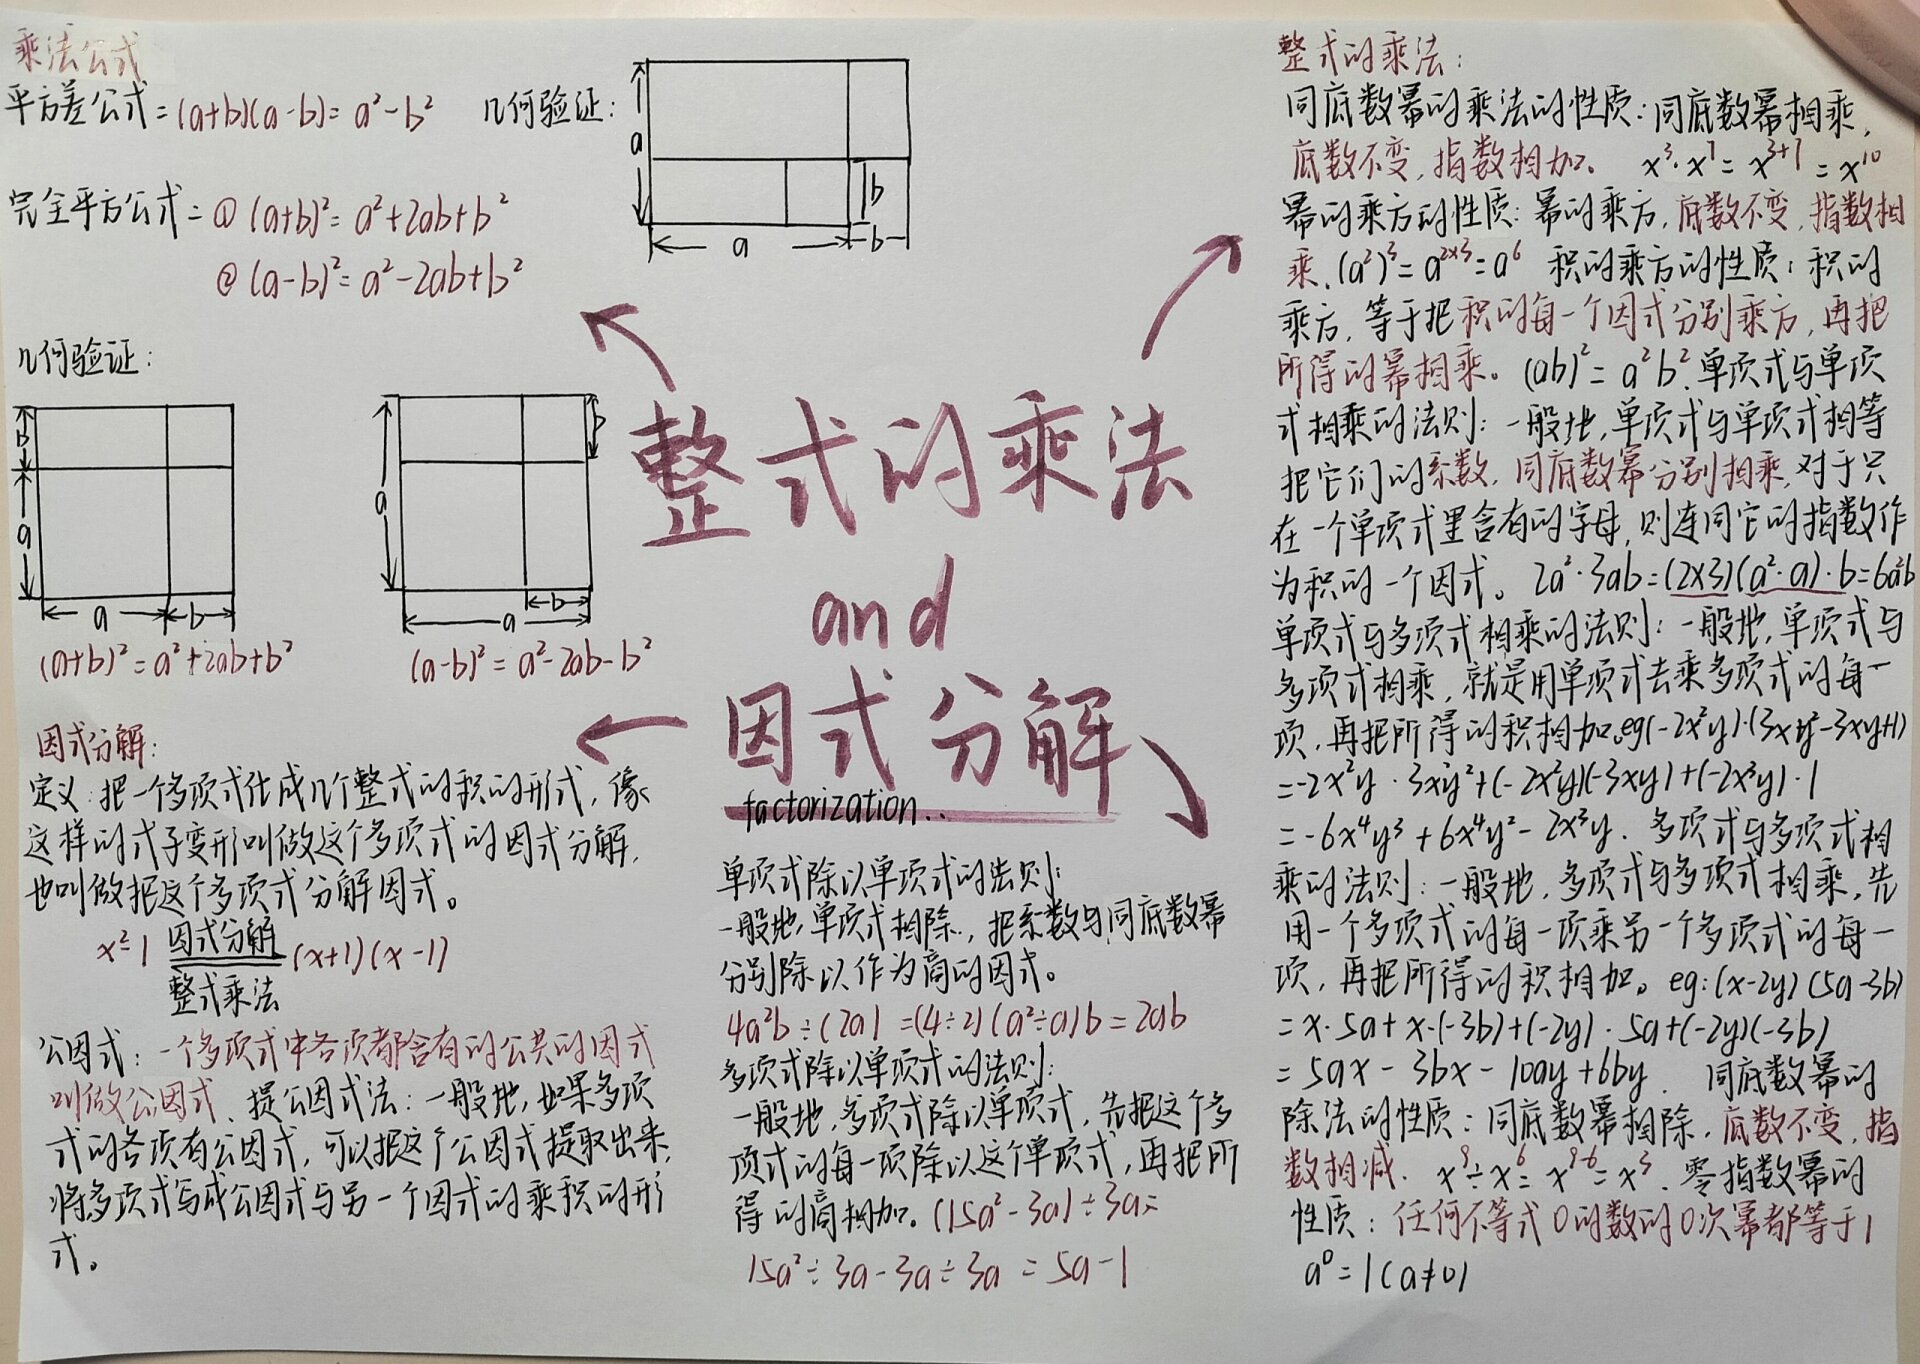 乘法公式
平方差公式=(a+b)(a-b)=a²-b² 几何验证:
a
b
a
b
完全平方公式=①(a+b)²=a²+2ab+b²
②(a-b)²=a²-2ab+b²
几何验证:
b
a
a b
(a+b)²=a²+2ab+b²
b
a
b
a
(a-b)²=a²-2ab-b²
整式的乘法
and
因式分解
factorization..
因式分解:
定义:把一个多项式化成几个整式的积的形式,像
这样的式子变形叫做这个多项式的因式分解,
也叫做把这个多项式分解因式。
因式分解
x²-1 (x+1)(x-1)
整式乘法
公因式:一个多项式中各项都含有的公共的因式
叫做公因式、提公因式法:一般地,如果多项
式的各项有公因式,可以把这个公因式提取出来,
将多项式写成公因式与另一个因式的乘积的形
式。
单项式除以单项式的法则:
一般地,单项式相除,把系数与同底数幂
分别除以作为商的因式。
4a²b÷(2a)=(4÷2)(a²÷a)b=2ab
多项式除以单项式的法则:
一般地,多项式除以单项式,先把这个多
项式的每一项除以这个单项式,再把所
得的商相加。(15a²-3a)÷3a=
15a²÷3a-3a÷3a=5a-1
整式的乘法:
同底数幂的乘法的性质:同底数幂相乘,
底数不变,指数相加。 x³·x⁷=x³⁺⁷=x¹⁰
幂的乘方的性质:幂的乘方,底数不变,指数相
乘.(a²)³=a²ˣ³=a⁶ 积的乘方的性质:积的
乘方,等于把积的每一个因式分别乘方,再把
所得的幂相乘。(ab)²=a²b².单项式与单项
式相乘的法则:一般地,单项式与单项式相等
把它们的系数,同底数幂分别相乘,对于只
在一个单项式里含有的字母,则连同它的指数作
为积的一个因式。2a²·3ab=(2×3)(a²·a)·b=6a³b
单项式与多项式相乘的法则:一般地,单项式与
多项式相乘,就是用单项式去乘多项式的每一
项,再把所得的积相加。eg(-2x²y)·(3x²y²-3xy+1)
=-2x²y·3x²y²+(-2x²y)(-3xy)+(-2x²y)·1
=-6x⁴y³+6x⁴y²-2x³y.多项式与多项式相
乘的法则:一般地,多项式与多项式相乘,先
用一个多项式的每一项乘另一个多项式的每一
项,再把所得的积相加。eg:(x-2y)(5a-3b)
=x·5a+x·(-3b)+(-2y)·5a+(-2y)(-3b)
=5ax-3bx-10ay+6by. 同底数幂的
除法的性质:同底数幂相除,底数不变,指
数相减. x⁹÷x⁶=x⁹⁻⁶=x³.零指数幂的
性质:任何不等式0的数的0次幂都等于1
a⁰=1(a≠0)